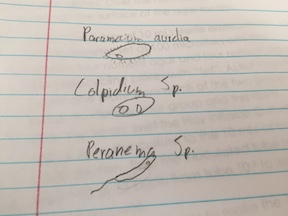 Paramecium aurelia
Colpidium Sp.
Peranema Sp.